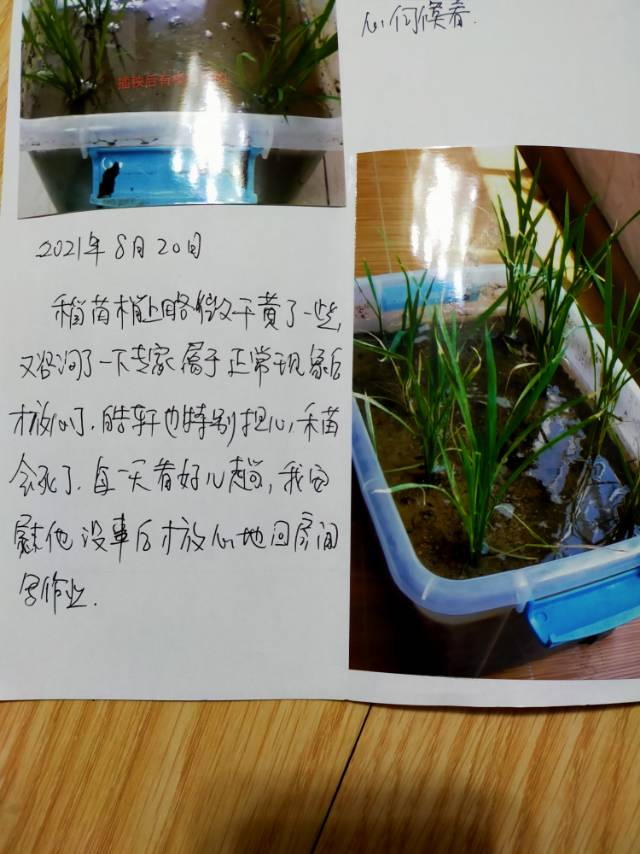 心伺候着.
插秧后有
2021年8月20日
稻苗梢上略微干黄了一些,
又咨询了一下专家属于正常现象后
才放心了.皓轩也特别担心,稻苗
会死了.每一天看好几趟,我安
慰他没事后才放心地回房间
写作业.